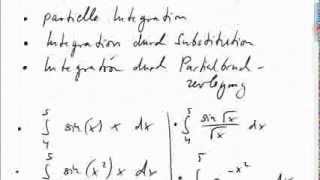 • partielle Integration
• Integration durch Substitution
• Integration durch Partialbruch-
zerlegung
• ∫₄⁵ sin(x) x dx • ∫₄⁵ sin √x / √x dx
• ∫₄⁵ sin(x²) x dx ∫⁵ e^(-x²) dx